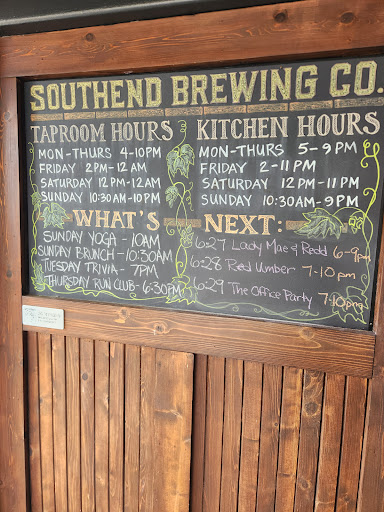 SOUTHEND BREWING CO.
TAPROOM HOURS
MON-THURS 4-10PM
FRIDAY 2PM-12AM
SATURDAY 12PM-12AM
SUNDAY 10:30AM-10PM
KITCHEN HOURS
MON-THURS 5-9PM
FRIDAY 2-11PM
SATURDAY 12PM-11PM
SUNDAY 10:30AM-9PM
WHAT'S NEXT:
SUNDAY YOGA - 10AM
SUNDAY BRUNCH - 10:30AM
TUESDAY TRIVIA - 7PM
THURSDAY RUN CLUB - 6:30PM
6:27 Lady Mae & Redd 6-9pm
6:28 Red Umber 7-10pm
6:29 The Office Party 7-10pm